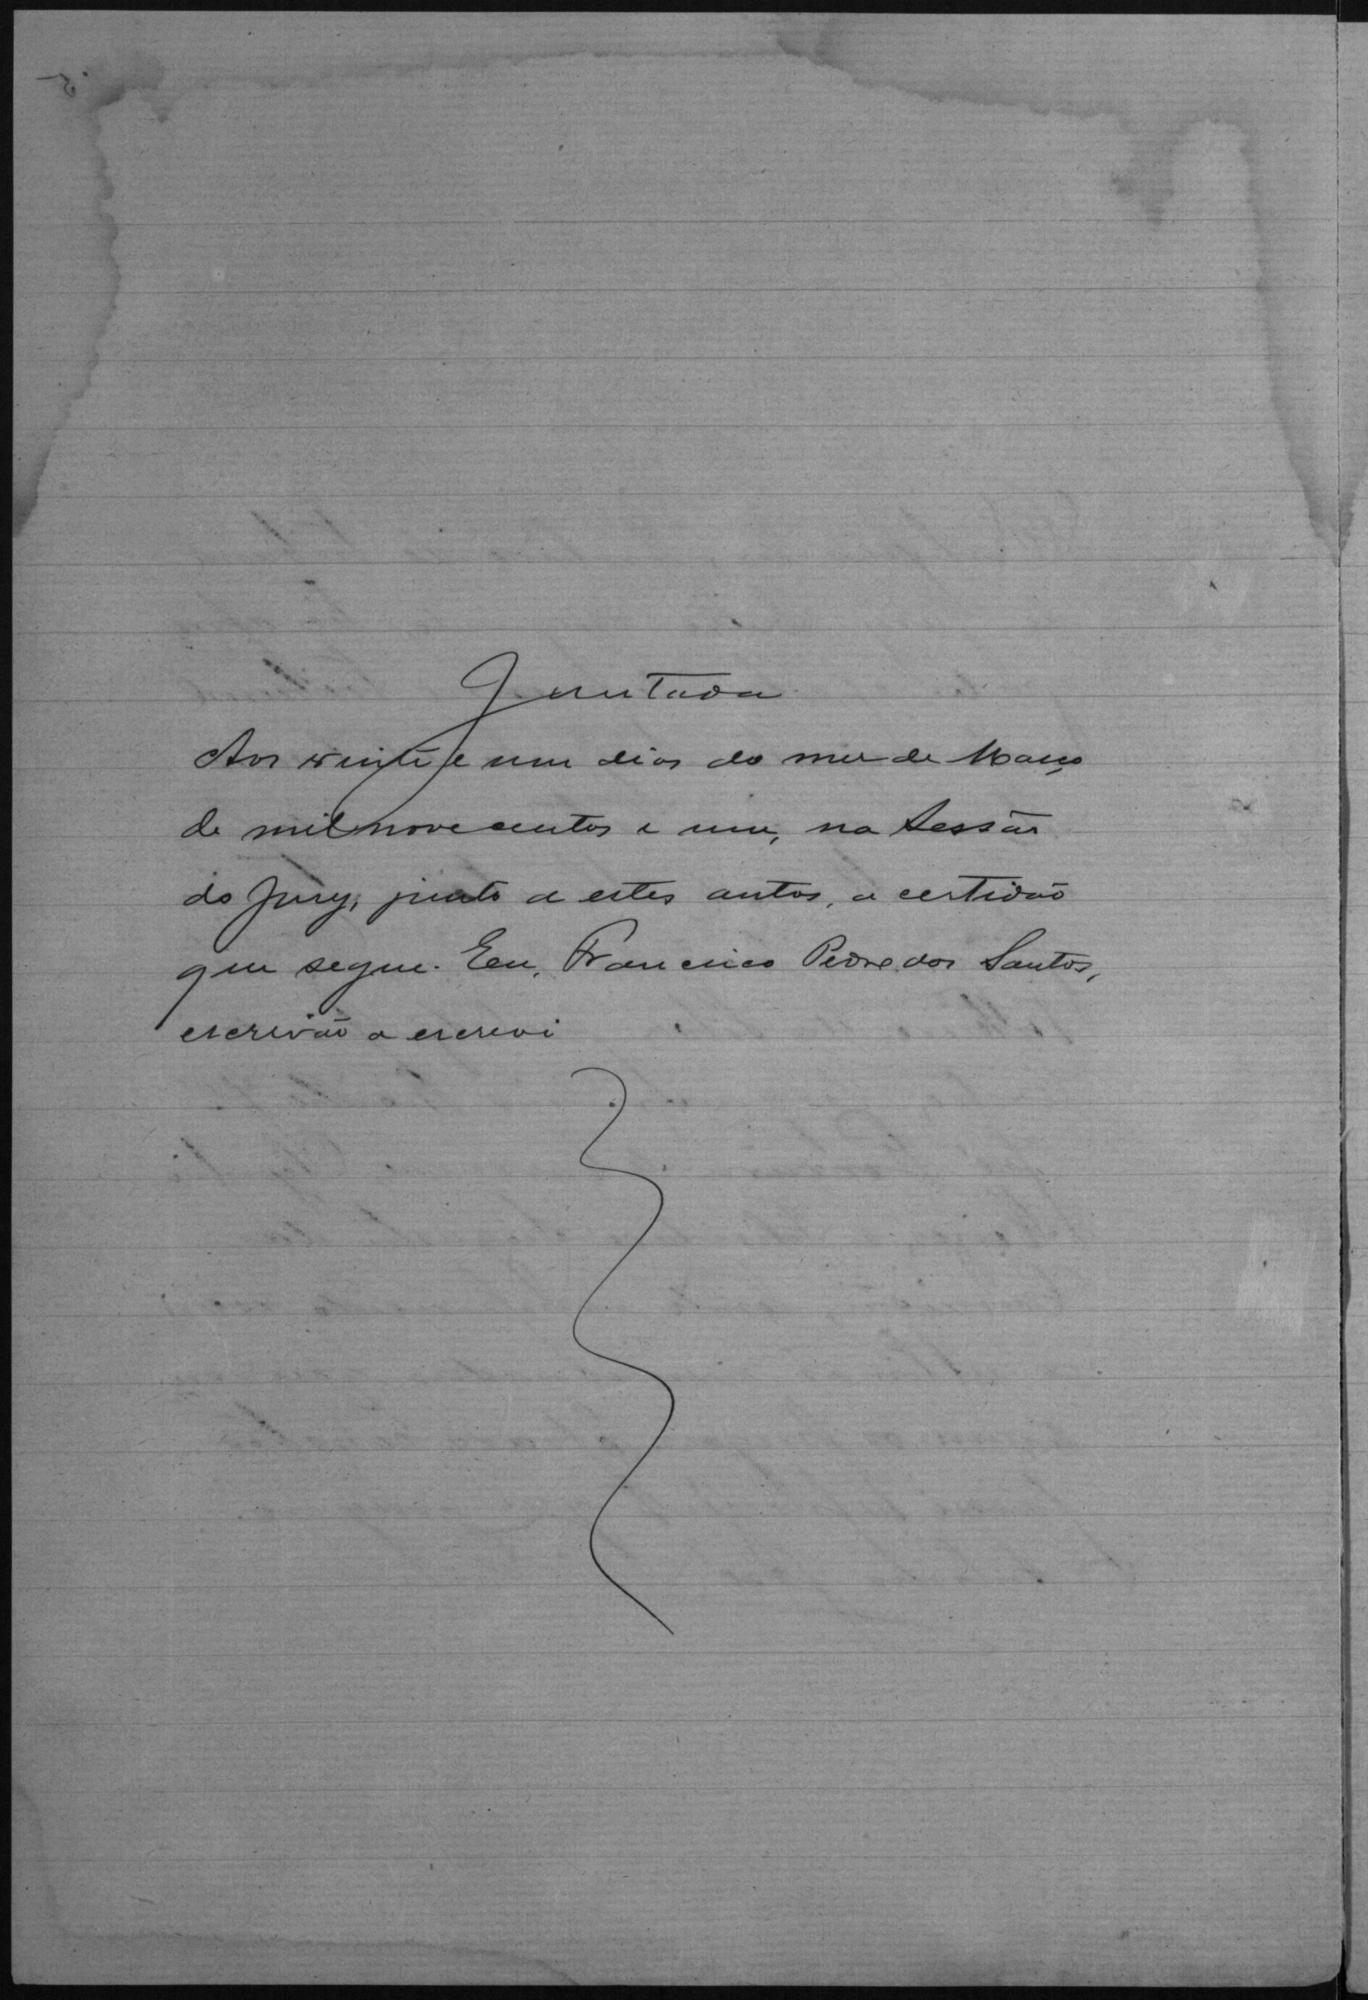 Juntada
Aos vinte e um dias do mez de Março
de mil novecentos e um, na Sessão
do Jury, junto a estes autos, a certidão
que segue. Eu, Francisco Pedro dos Santos,
escrivão o escrevi